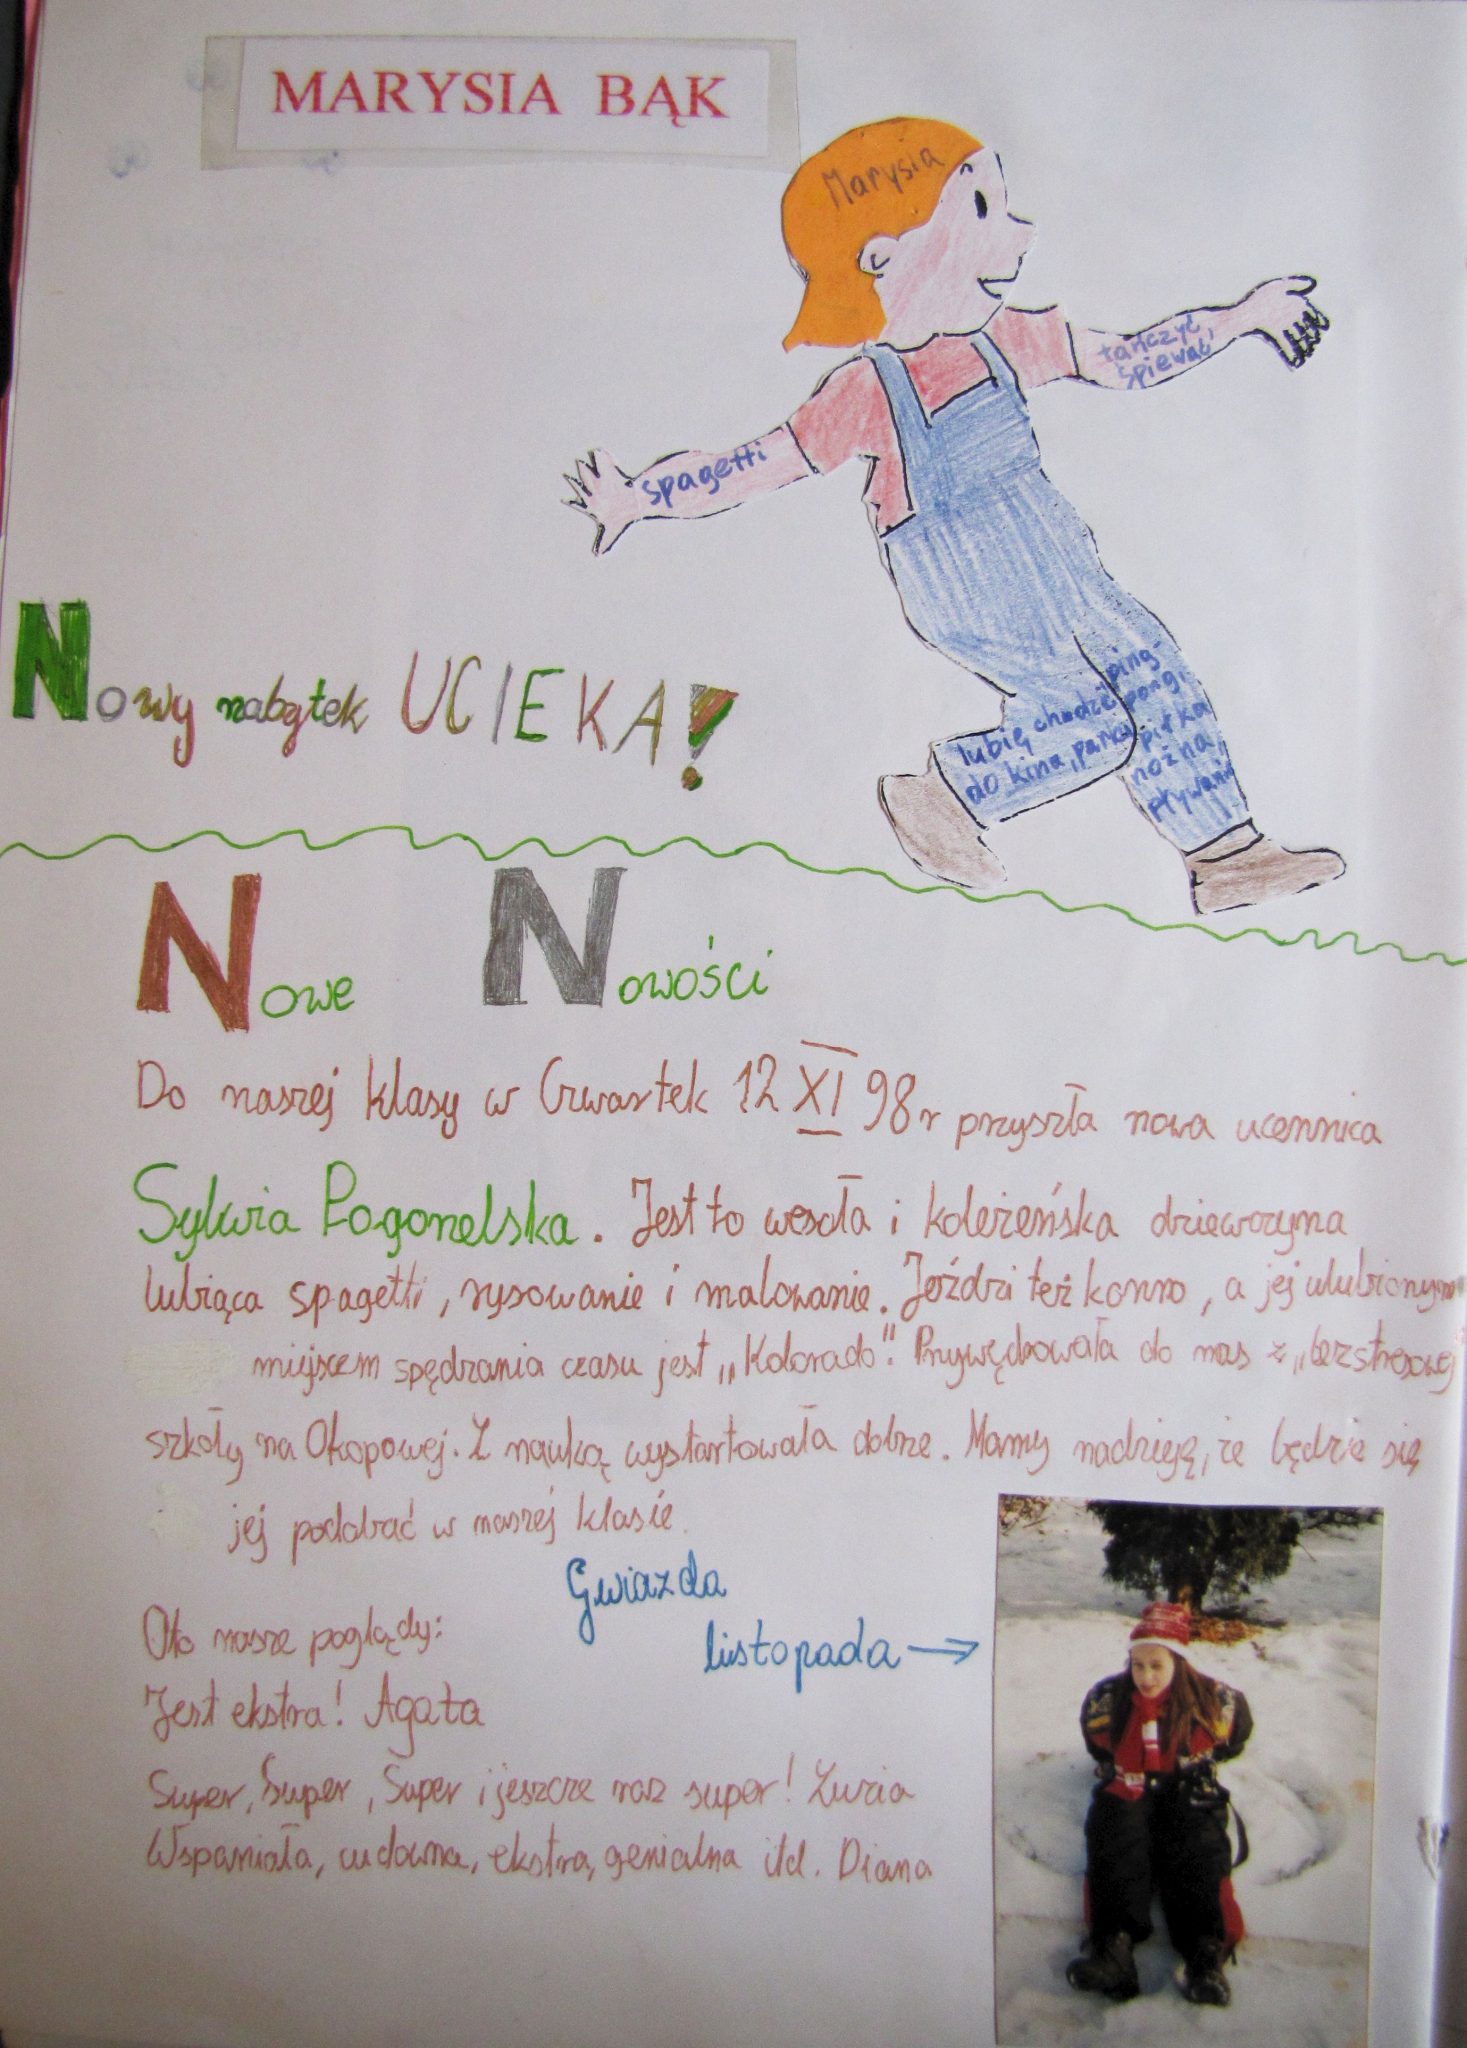 MARYSIA BĄK
Marysia
tańczyć,
śpiewać
spagetti
lubię chodzić
do kina, parku
ping-
pongi
piłka
nożna,
pływanie
Nowy nabytek UCIEKA!
Nowe Nowości
Do naszej klasy w Czwartek 12 XI 98 r przyszła nowa uczennica
Sylwia Pogonelska. Jest to wesoła i koleżeńska dziewczyna
lubiąca spagetti, rysowanie i malowanie. Jeździ też konno, a jej ulubionym
miejscem spędzania czasu jest „Kolorado". Przywędrowała do nas z „bezstresowej
szkoły na Okopowej. Z nauką wystartowała dobrze. Mamy nadzieję, że będzie się
jej podobać w naszej klasie.
Gwiazda
listopada →
Oto nasze poglądy:
Jest ekstra! Agata
Super, Super, Super i jeszcze raz super! Zuzia
Wspaniała, cudowna, ekstra, genialna itd. Diana